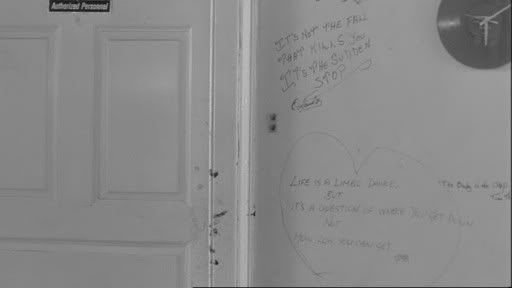 Authorized Personnel
IT'S NOT THE FALL
THAT KILLS YOU
IT'S THE SUDDEN
STOP
LIFE IS A LIMBO DANCE,
BUT
IT'S A QUESTION OF WHERE YOU GET DOWN
NOT
HOW LOW YOU CAN GET.
"The Body is the